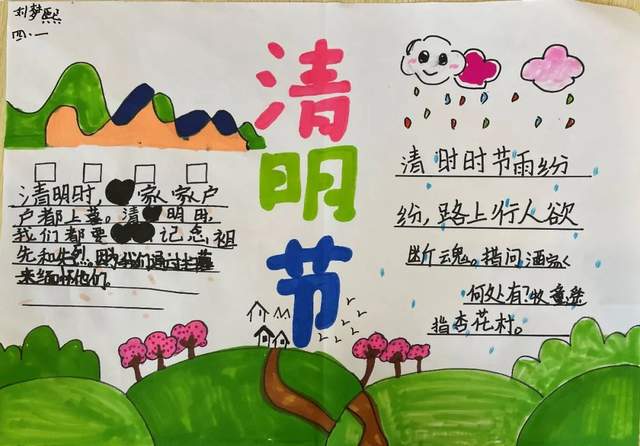 刘梦熙
四·一
清明节
清明时，家家户
户都上墓。清明时，
我们都要记念祖
先和先烈。
来缅怀他们。
清时时节雨纷
纷，路上行人欲
断魂。措问酒家
何处有？牧童
指杏花村。